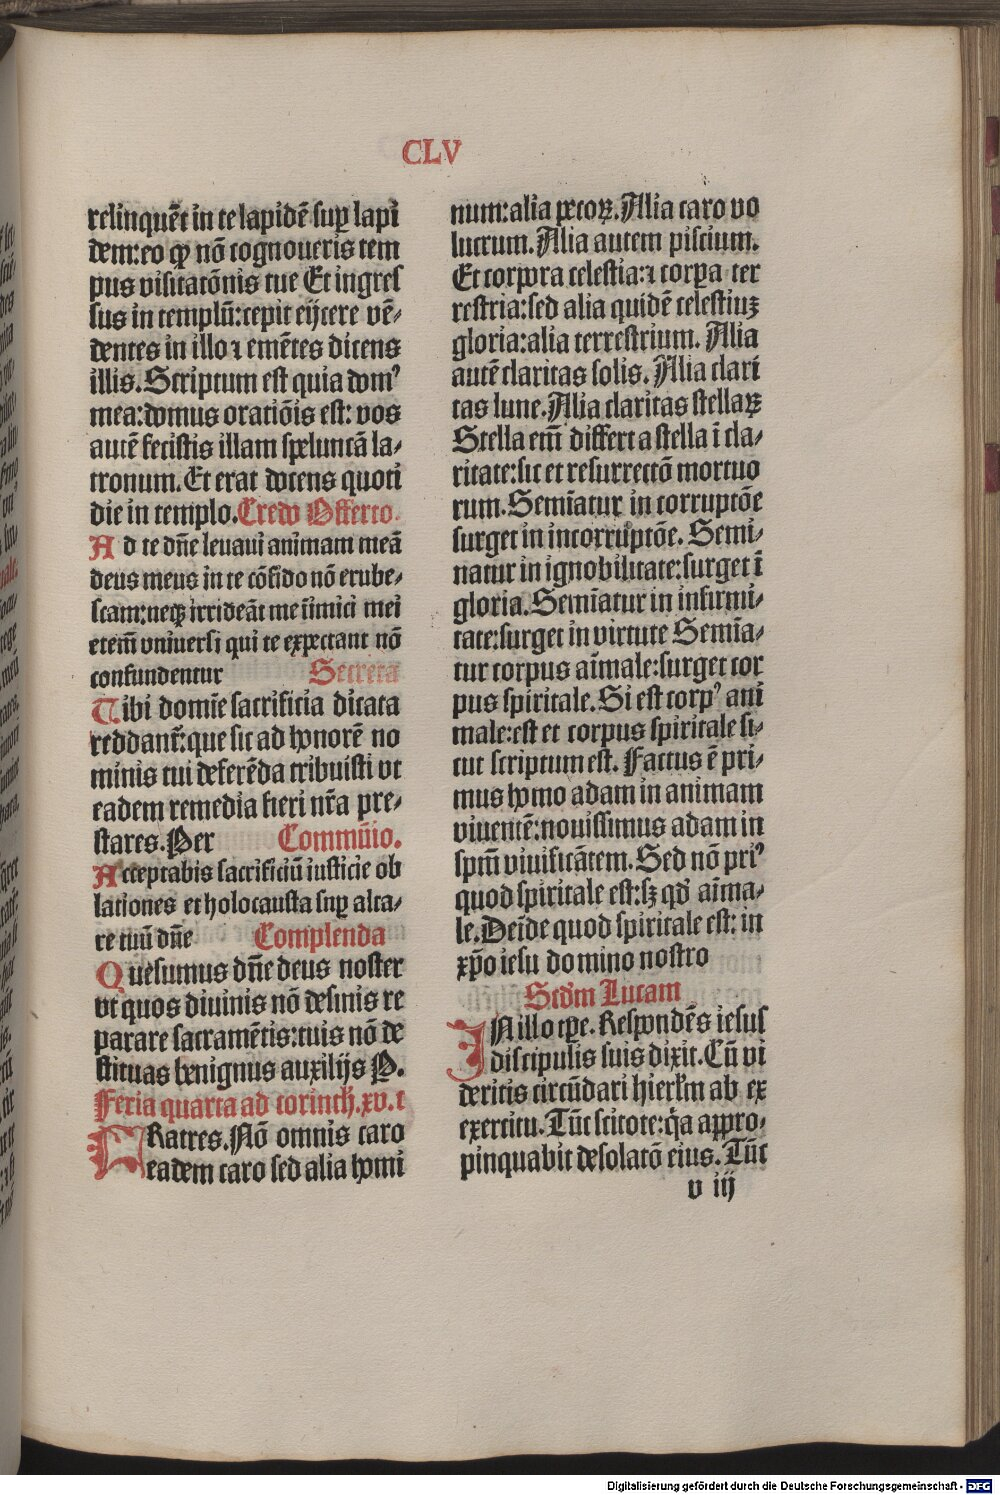 CLV
relinquēt in te lapidē suꝑ lapi
dem: eo ꝙ nō cognoueris tem
pus visitatōnis tue Et ingres
sus in templū: cepit eijcere vē-
dentes in illo ⁊ emētes dicens
illis. Scriptum est quia domꝰ
mea: domus oratiōis est: vos
autē fecistis illam speluncā la-
tronum. Et erat docens quoti
die in templo. Credo Offerto.
Ad te dn̄e leuaui animam meā
deus meus in te cōfido nō erube-
scam: neqꝫ irrideāt me īimici mei
etem̄ vniuersi qui te expectant nō
confundentur Secreta
Tibi domīe sacrificia dicata
reddant᷑: que sic ad honorē no
minis tui deferēda tribuisti vt
eadem remedia fieri nr̄a pre-
stares. Per Commūio.
Acceptabis sacrificiū iusticie ob
lationes et holocausta suꝑ alta-
re tuū dn̄e Complenda
Quesumus dn̄e deus noster
vt quos diuinis nō desinis re
parare sacramētis: tuis nō de
stituas benignus auxilijs P.
Feria quarta ad corinth. xv. c
FRatres. Nō omnis caro
eadem caro sed alia homi
num: alia pecoꝝ. Alia caro vo
lucrum. Alia autem piscium.
Et corpora celestia: ⁊ corpa ter
restria: sed alia quidē celestiuꝫ
gloria: alia terrestrium. Alia
autē claritas solis. Alia clari
tas lune. Alia claritas stellaꝝ
Stella em̄ differt a stella ī cla-
ritate: sic et resurrectō mortuo
rum. Semīatur in corruptōe
surget in incorruptōe. Semi-
natur in ignobilitate: surget ī
gloria. Semīatur in infirmi-
tate: surget in virtute Semīa-
tur corpus aīmale: surget cor
pus spiritale. Si est corpꝰ ani
male: est et corpus spiritale si-
cut scriptum est. Factus ē pri-
mus homo adam in animam
viuentē: nouissimus adam in
spm̄ viuificātem. Sed nō priꝰ
quod spiritale est: sꝫ qd̄ aīma-
le. Deīde quod spiritale est: in
xp̄o iesu domino nostro
Scd̄m Lucam
IN illo tꝑe. Respondēs iesus
discipulis suis dixit. Cū vi
deritis circūdari hierl̄m ab ex
exercitu. Tūc scitote: qꝛ appro-
pinquabit desolatō eius. Tūc
v iij
Digitalisierung gefördert durch die Deutsche Forschungsgemeinschaft - DFG